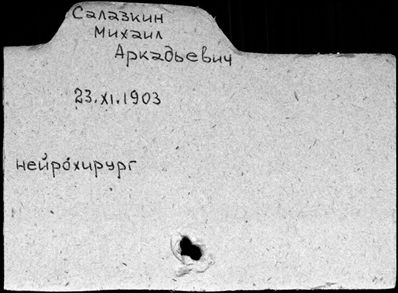 Салазкин
Михаил
Аркадьевич
23.XI.1903
нейрохирург